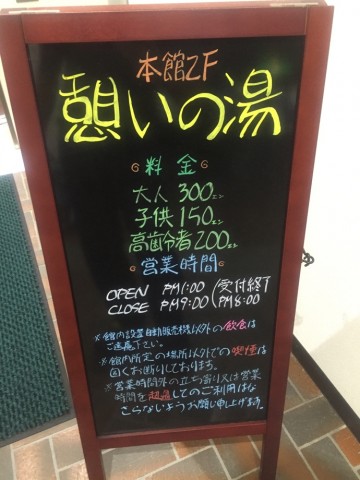 本館2F
憩いの湯
料金
大人 300エン
子供 150エン
高齢者200エン
営業時間
OPEN PM1:00 (受付終了
CLOSE PM9:00 (PM8:00)
※館内設置自動販売機以外の飲食は
ご遠慮下さい。
※館内所定の場所以外での喫煙は
固くお断りしております。
※営業時間外の立ち寄り又は営業
時間を超過してのご利用はな
さらないようお願い申し上げます。